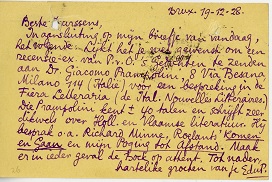 Brux 19-12-28.
Beste Janssens,
In aansluiting op mijn briefje van vandaag,
het volgende: lijkt het je niet gewenst om een
recensie-ex. van P.v.O.'s te zenden aan
Dr. Giacomo Prampolini, 8 Via Besana
Milano 114 (Italië) voor een bespreking in de
Fiera Letteraria (de Ital. Nouvelles Littéraires).
Die Prampolini kent ± 40 talen en schrijft zeer
dikwels over Holl. en Vlaamse literatuur. Hij
besprak o.a. Richard Minne, Roelants' Komen
en Gaan en mijn Poging tot Afstand. Maak
er in ieder geval de Bock op attent. Tot nader,
hartelike groeten van je EduP.